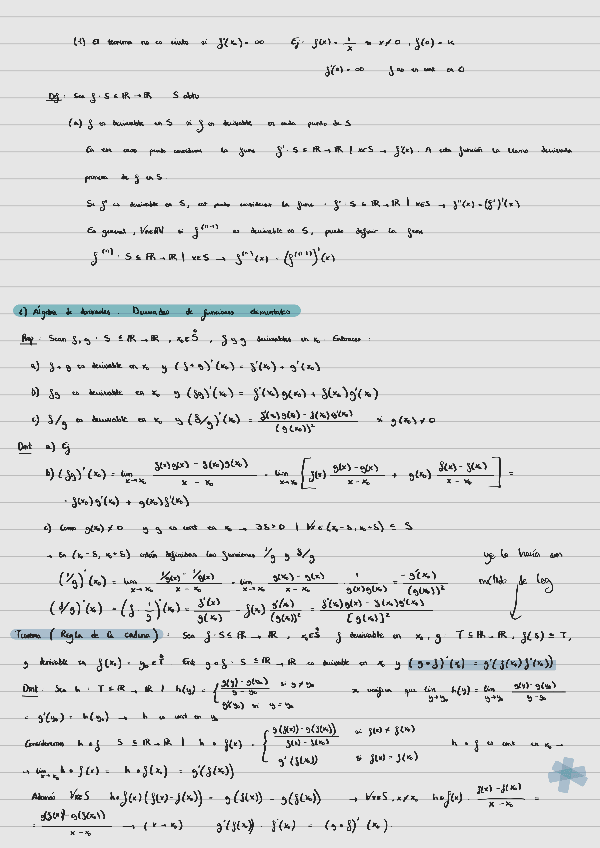 (1) El teorema no es cierto si f'(x₀) = ∞ Ej: f(x) = 1/x si x ≠ 0, f(0) = k
f'(0) = ∞ f no es cont en 0
Def: Sea f: S ⊆ ℝ → ℝ S abto
(a) f es derivable en S si f es derivable en cada punto de S
En ese caso puedo considerar la func f': S ⊆ ℝ → ℝ | x∈S → f'(x). A esta función la llamo derivada
primera de f en S.
Si f' es derivable en S, puedo considerar la func f'': S ⊆ ℝ → ℝ | x∈S → f''(x) = (f')'(x)
En general, ∀n∈ℕ si f⁽ⁿ⁻¹⁾ es derivable en S, puedo definir la func
f⁽ⁿ⁾: S ⊆ ℝ → ℝ | x∈S → f⁽ⁿ⁾(x) = (f⁽ⁿ⁻¹⁾)'(x)
Álgebra de derivadas. Derivadas de funciones elementales
Prop: Sean f, g: S ⊆ ℝ → ℝ, x₀∈S̊, f y g derivables en x₀. Entonces:
a) f+g es derivable en x₀ y (f+g)'(x₀) = f'(x₀) + g'(x₀)
b) fg es derivable en x₀ y (fg)'(x₀) = f'(x₀)g(x₀) + f(x₀)g'(x₀)
c) f/g es derivable en x₀ y (f/g)'(x₀) = (f'(x₀)g(x₀) - f(x₀)g'(x₀))/(g(x₀))² si g(x₀) ≠ 0
Dmt: a) Ej
b) (fg)'(x₀) = lim x→x₀ (f(x)g(x) - f(x₀)g(x₀))/(x - x₀) = lim x→x₀ [f(x) (g(x) - g(x₀))/(x - x₀) + g(x₀) (f(x) - f(x₀))/(x - x₀)] =
= f(x₀)g'(x₀) + g(x₀)f'(x₀)
c) Como g(x₀) ≠ 0 y g es cont en x₀ → ∃δ>0 | ∀x∈(x₀-δ, x₀+δ) ⊆ S
→ En (x₀-δ, x₀+δ) están definidas las funciones 1/g y f/g
yo lo haría con
(1/g)'(x₀) = lim x→x₀ (1/g(x) - 1/g(x₀))/(x - x₀) = lim x→x₀ (g(x₀) - g(x))/(x - x₀) · 1/(g(x)g(x₀)) = -g'(x₀)/(g(x₀))²
método de log
(f/g)'(x₀) = (f · 1/g)'(x₀) = f'(x)/g(x₀) - f(x₀) g'(x₀)/(g(x₀))² = (f'(x₀)g(x₀) - f(x₀)g'(x₀))/[g(x₀)]²
Teorema (Regla de la cadena): Sea f: S ⊆ ℝ → ℝ, x₀∈S̊ f derivable en x₀, g: T ⊆ ℝ → ℝ, f(S) ⊆ T,
g derivable en f(x₀) = y₀∈T̊ Ent g∘f: S ⊆ ℝ → ℝ es derivable en x₀ y (g∘f)'(x₀) = g'(f(x₀))f'(x₀)
Dmt: Sea h: T ⊆ ℝ → ℝ | h(y) = { (g(y) - g(y₀))/(y - y₀) si y ≠ y₀ g'(y₀) si y = y₀ se verifica que lim y→y₀ h(y) = lim y→y₀ (g(y) - g(y₀))/(y - y₀)
= g'(y₀) = h(y₀) → h es cont en y₀
Consideramos h∘f: S ⊆ ℝ → ℝ | h∘f(x) = { (g(f(x)) - g(f(x₀)))/(f(x) - f(x₀)) si f(x) ≠ f(x₀) g'(f(x₀)) si f(x) = f(x₀) h∘f es cont en x₀ →
→ lim x→x₀ h∘f(x) = h∘f(x₀) = g'(f(x₀))
Además ∀x∈S h∘f(x)(f(x) - f(x₀)) = g(f(x)) - g(f(x₀)) → ∀x∈S, x≠x₀ h∘f(x) · (f(x) - f(x₀))/(x - x₀) =
= (g(f(x)) - g(f(x₀)))/(x - x₀) → (x→x₀) g'(f(x₀)) · f'(x₀) = (g∘f)'(x₀).